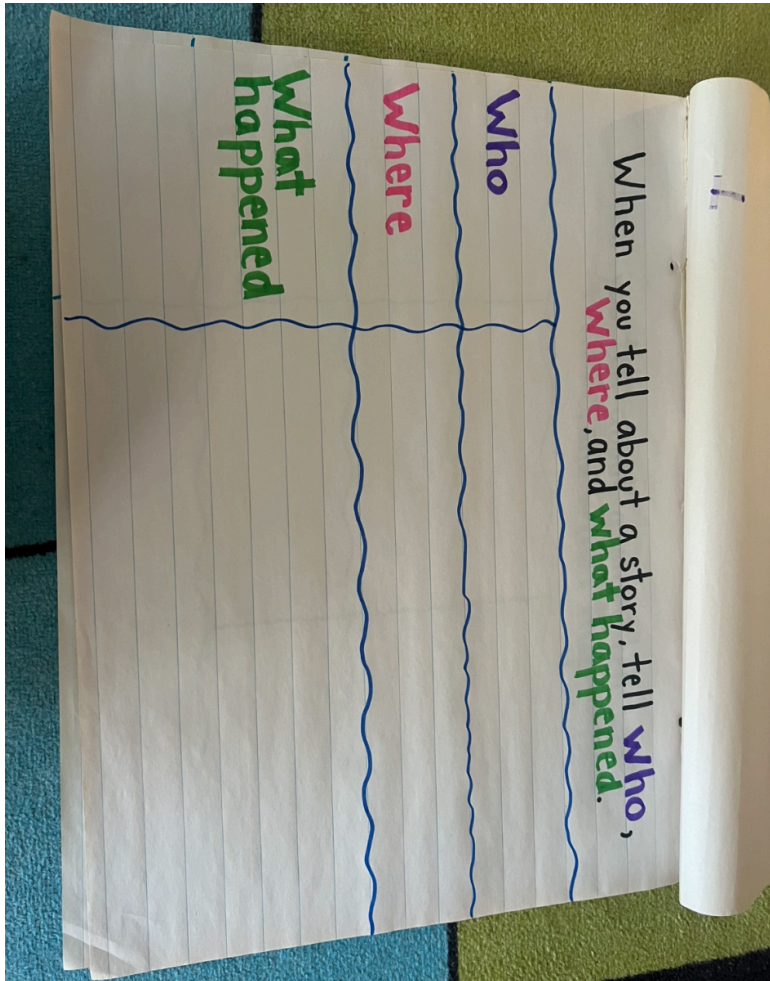 When you tell about a story, tell who,
where, and what happened.
Who
Where
What
happened